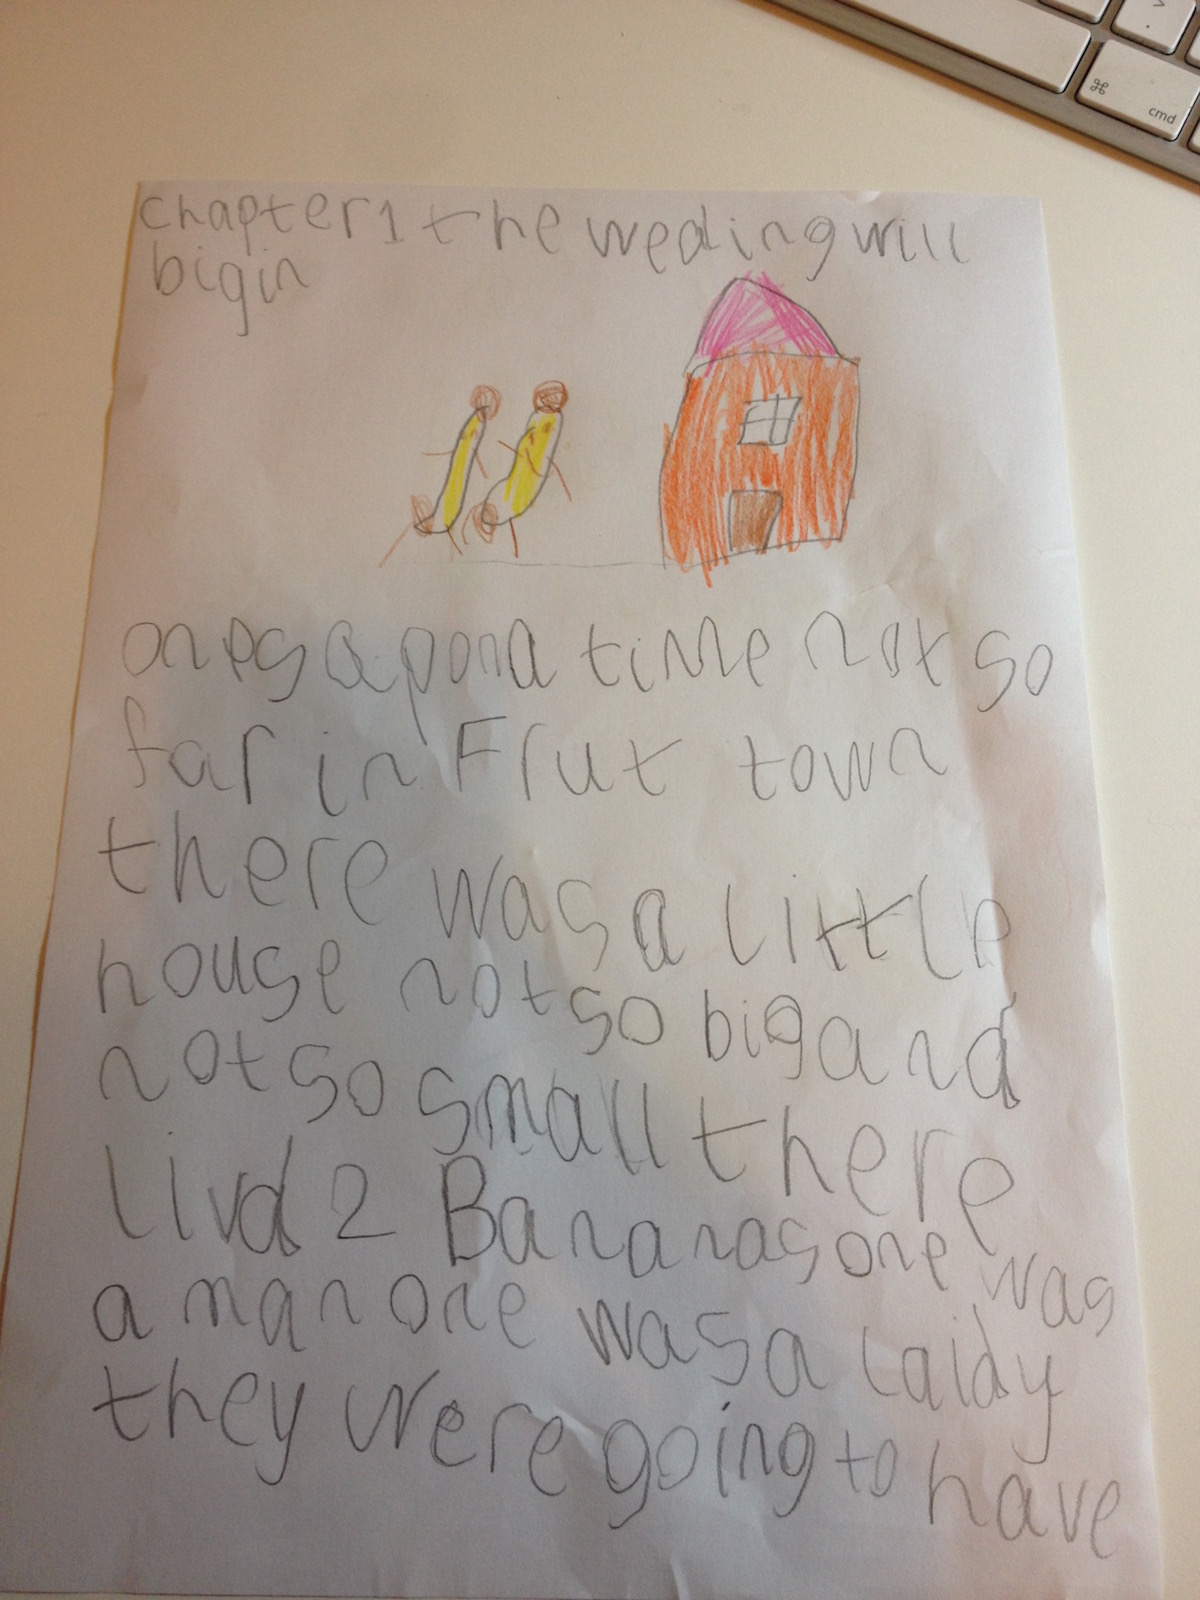 chapter 1 the weding will
bigin
onesaponatime not so
far in Frut town
there was a little
house not so big and
not so small there
livd 2 Bananas one was
a man one was a laidy
they were going to have
⌘
cmd